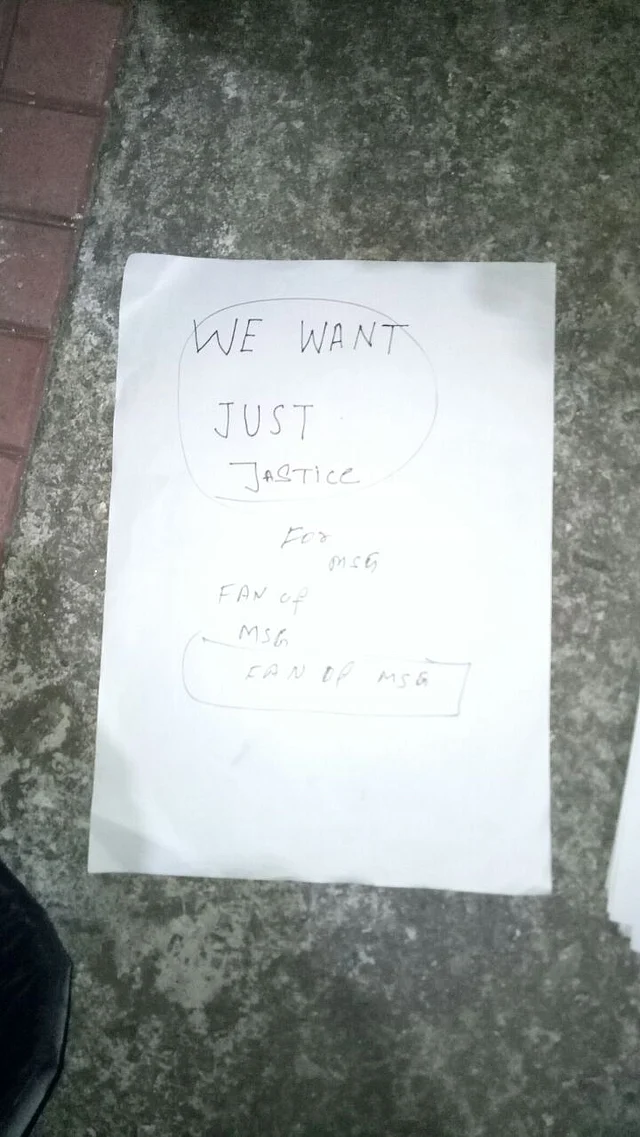 WE WANT
JUST
JASTICE
For
MSG
FAN of
MSG
FAN OF MSG